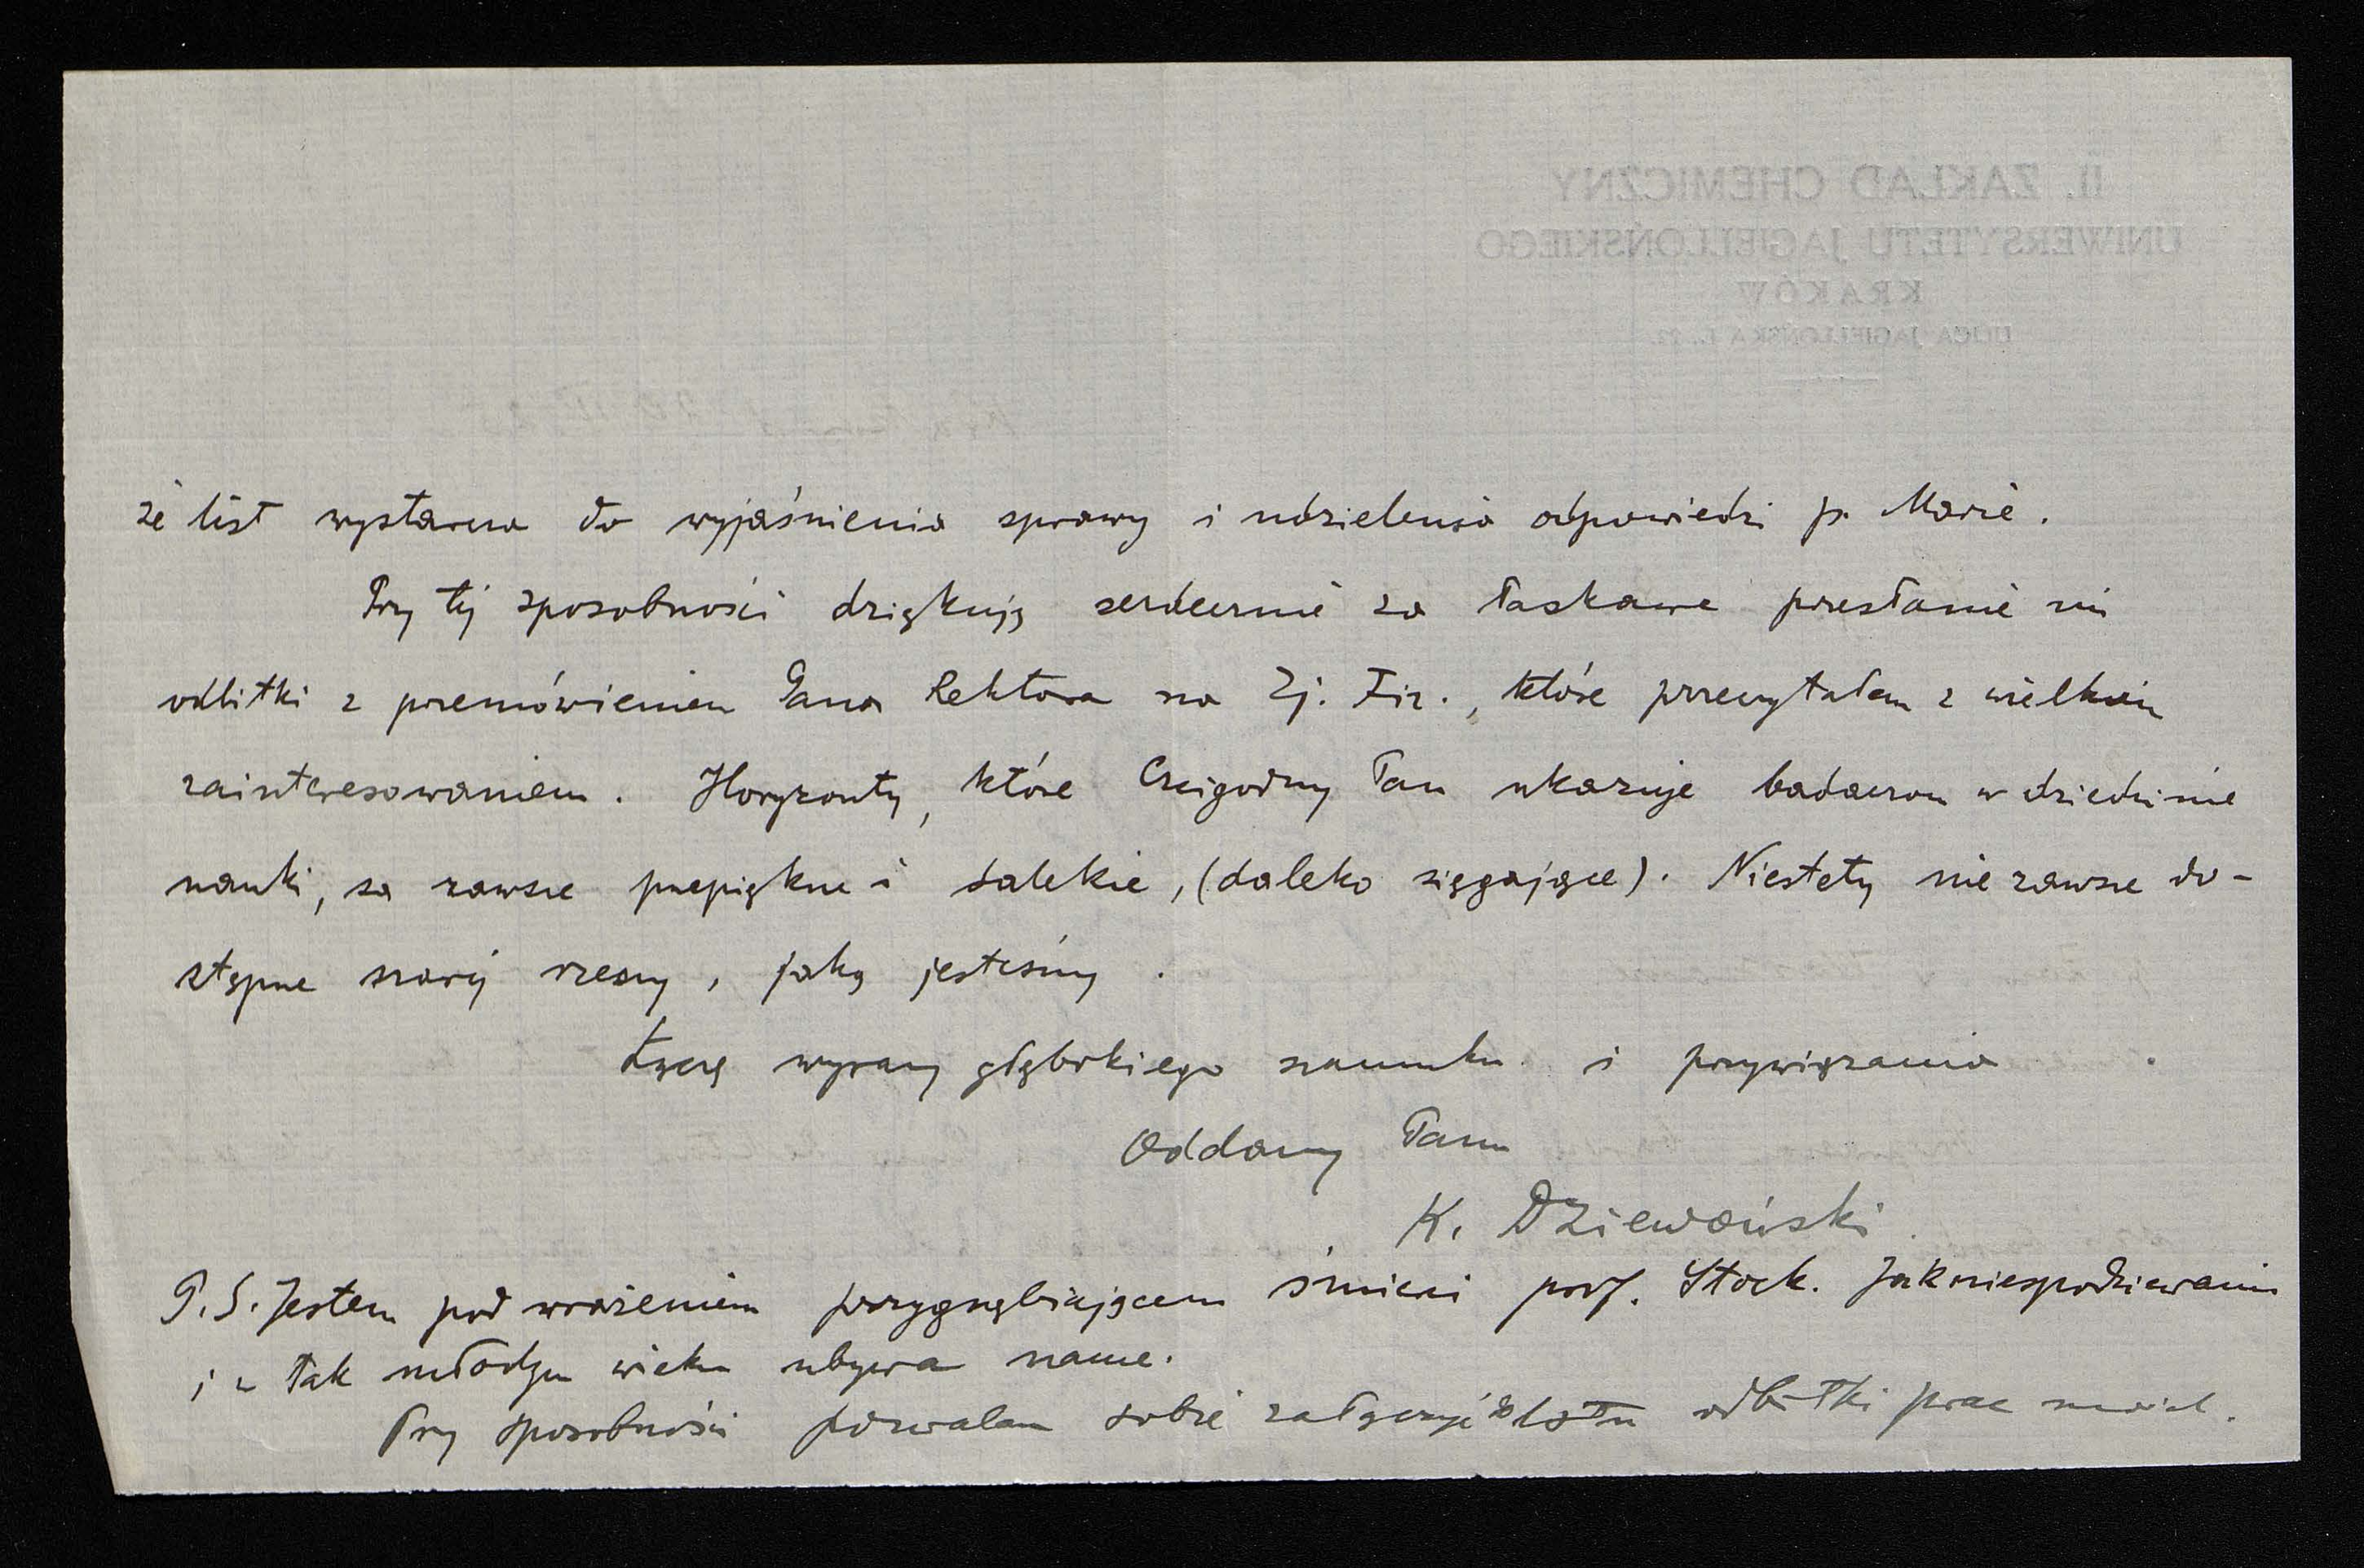 II. ZAKŁAD CHEMICZNY
UNIWERSYTETU JAGIELLOŃSKIEGO
KRAKÓW
ULICA JAGIELLOŃSKA L. 22.
że list wystarcza do wyjaśnienia sprawy i udzielenia odpowiedzi p.
Przy tej sposobności dziękuję serdecznie za łaskawe przesłanie mi
odbitki z przemówieniem Pana Rektora na Zj. Fiz., które przeczytałem z wielkim
zainteresowaniem. Horyzonty, które Czcigodny Pan ukazuje badaczom w dziedzinie
nauki, są zawsze przepiękne i dalekie, (daleko sięgające). Niestety nie zawsze do-
stępne szarej rzeszy, jaką jesteśmy.
Łączę wyrazy głębokiego szacunku i przywiązania
Oddany Panu
K. Dziewoński
P.S. Jestem pod wrażeniem przygnębiającem śmierci prof. Stock. Jak niespodziewanie
i w tak młodym wieku ubywa nauce.
Przy sposobności pozwalam sobie załączyć do listu odbitki prac moich.